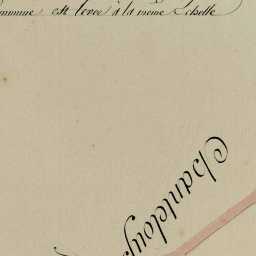 ommune est levée à la même Echelle
Chanteloup